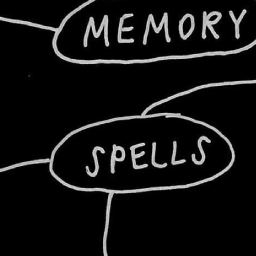 MEMORY
SPELLS